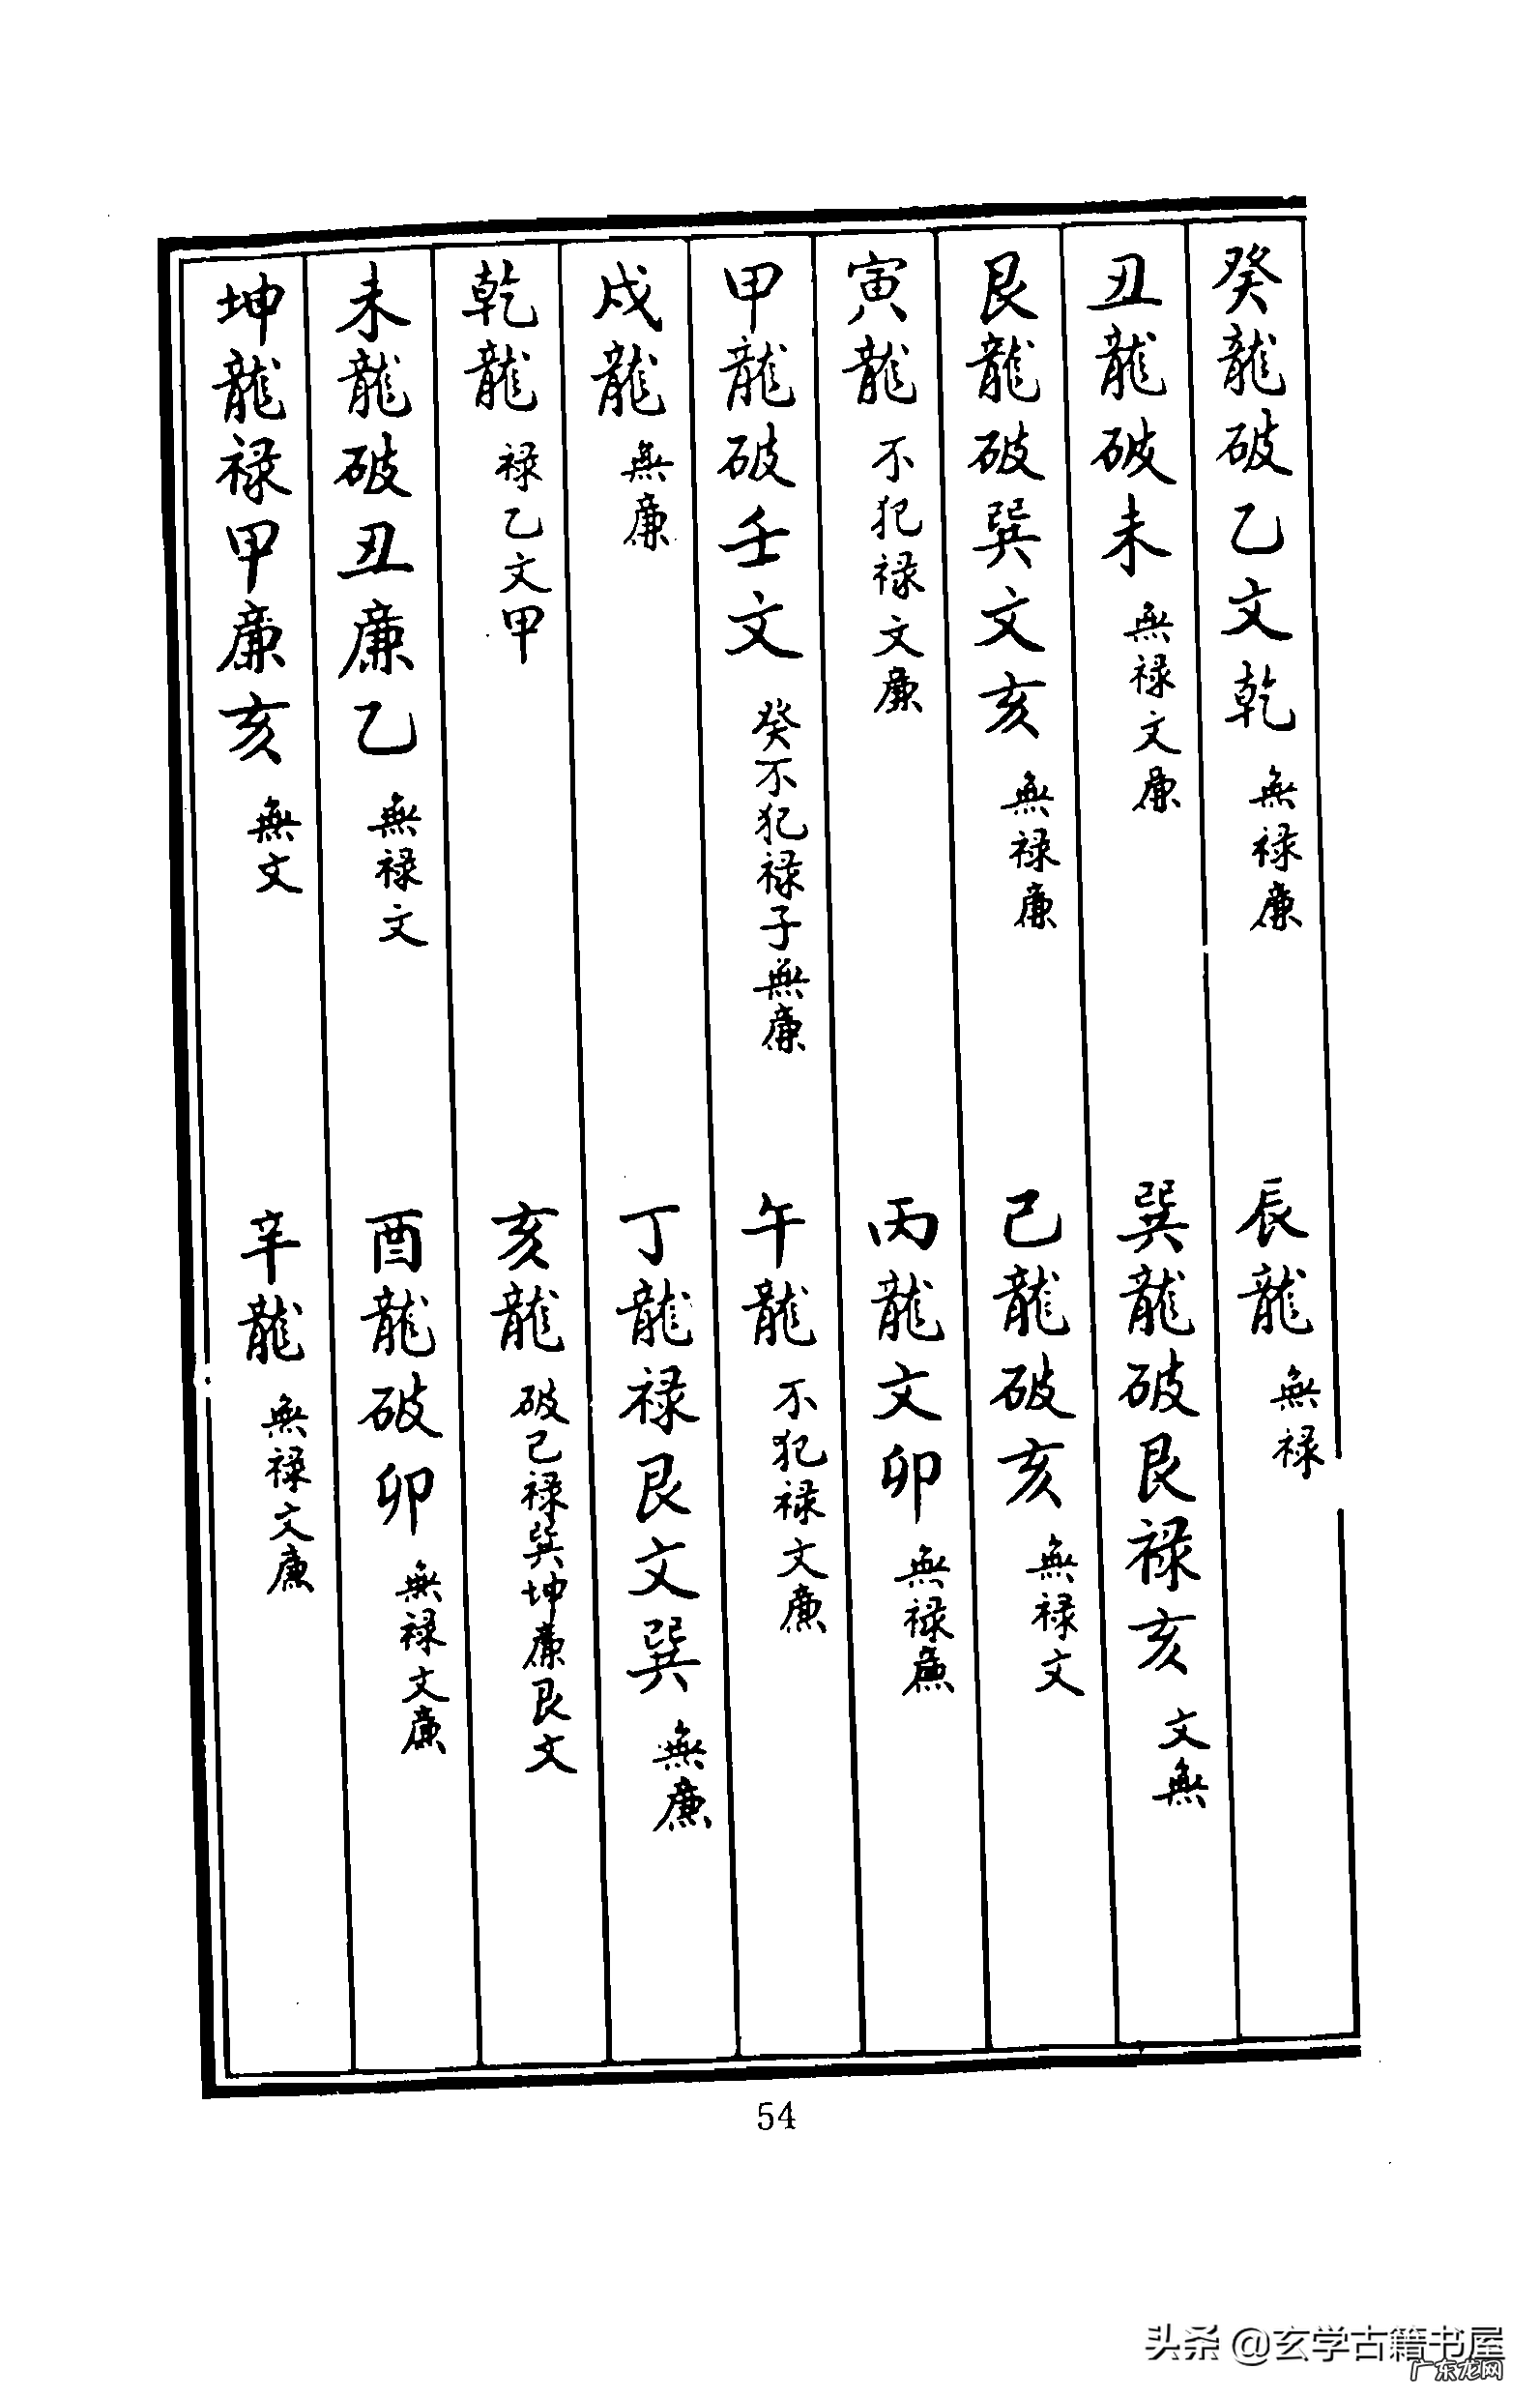 癸龍破乙文乾 無禄廉 辰龍 無禄
丑龍破未 無禄文廉 巽龍破艮禄亥 文無
艮龍破巽文亥 無禄廉 己龍破亥 無禄文
寅龍 不犯禄文廉 丙龍文卯 無禄廉
甲龍破壬文 癸不犯禄子無廉 午龍 不犯禄文廉
戌龍 無廉 丁龍禄艮文巽 無廉
乾龍 禄乙文甲 亥龍 破己禄巽坤廉艮文
未龍破丑廉乙 無禄文 酉龍破卯 無禄文廉
坤龍禄甲廉亥 無文 辛龍 無禄文廉
54
头条 @玄学古籍书屋
广东龙网